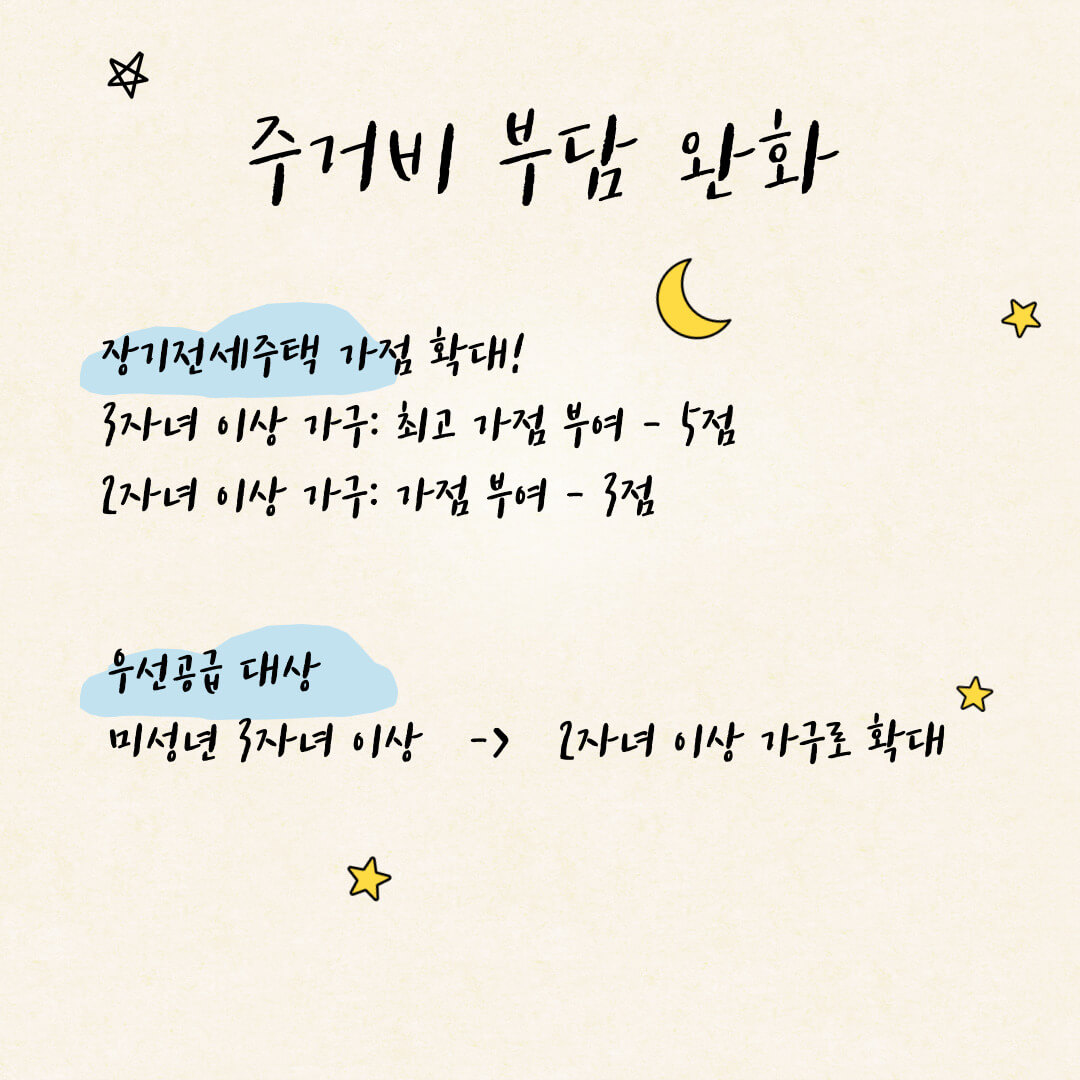 주거비 부담 완화
장기전세주택 가점 확대!
3자녀 이상 가구: 최고 가점 부여 - 5점
2자녀 이상 가구: 가점 부여 - 3점
우선공급 대상
미성년 3자녀 이상 -> 2자녀 이상 가구로 확대